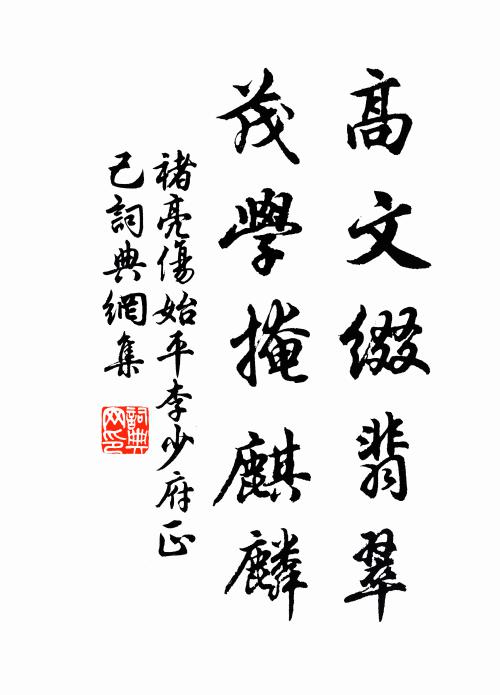 高文缀翡翠
茂學掩麒麟
褚亮傷始平李少府正
己詞典網集
詞典网印